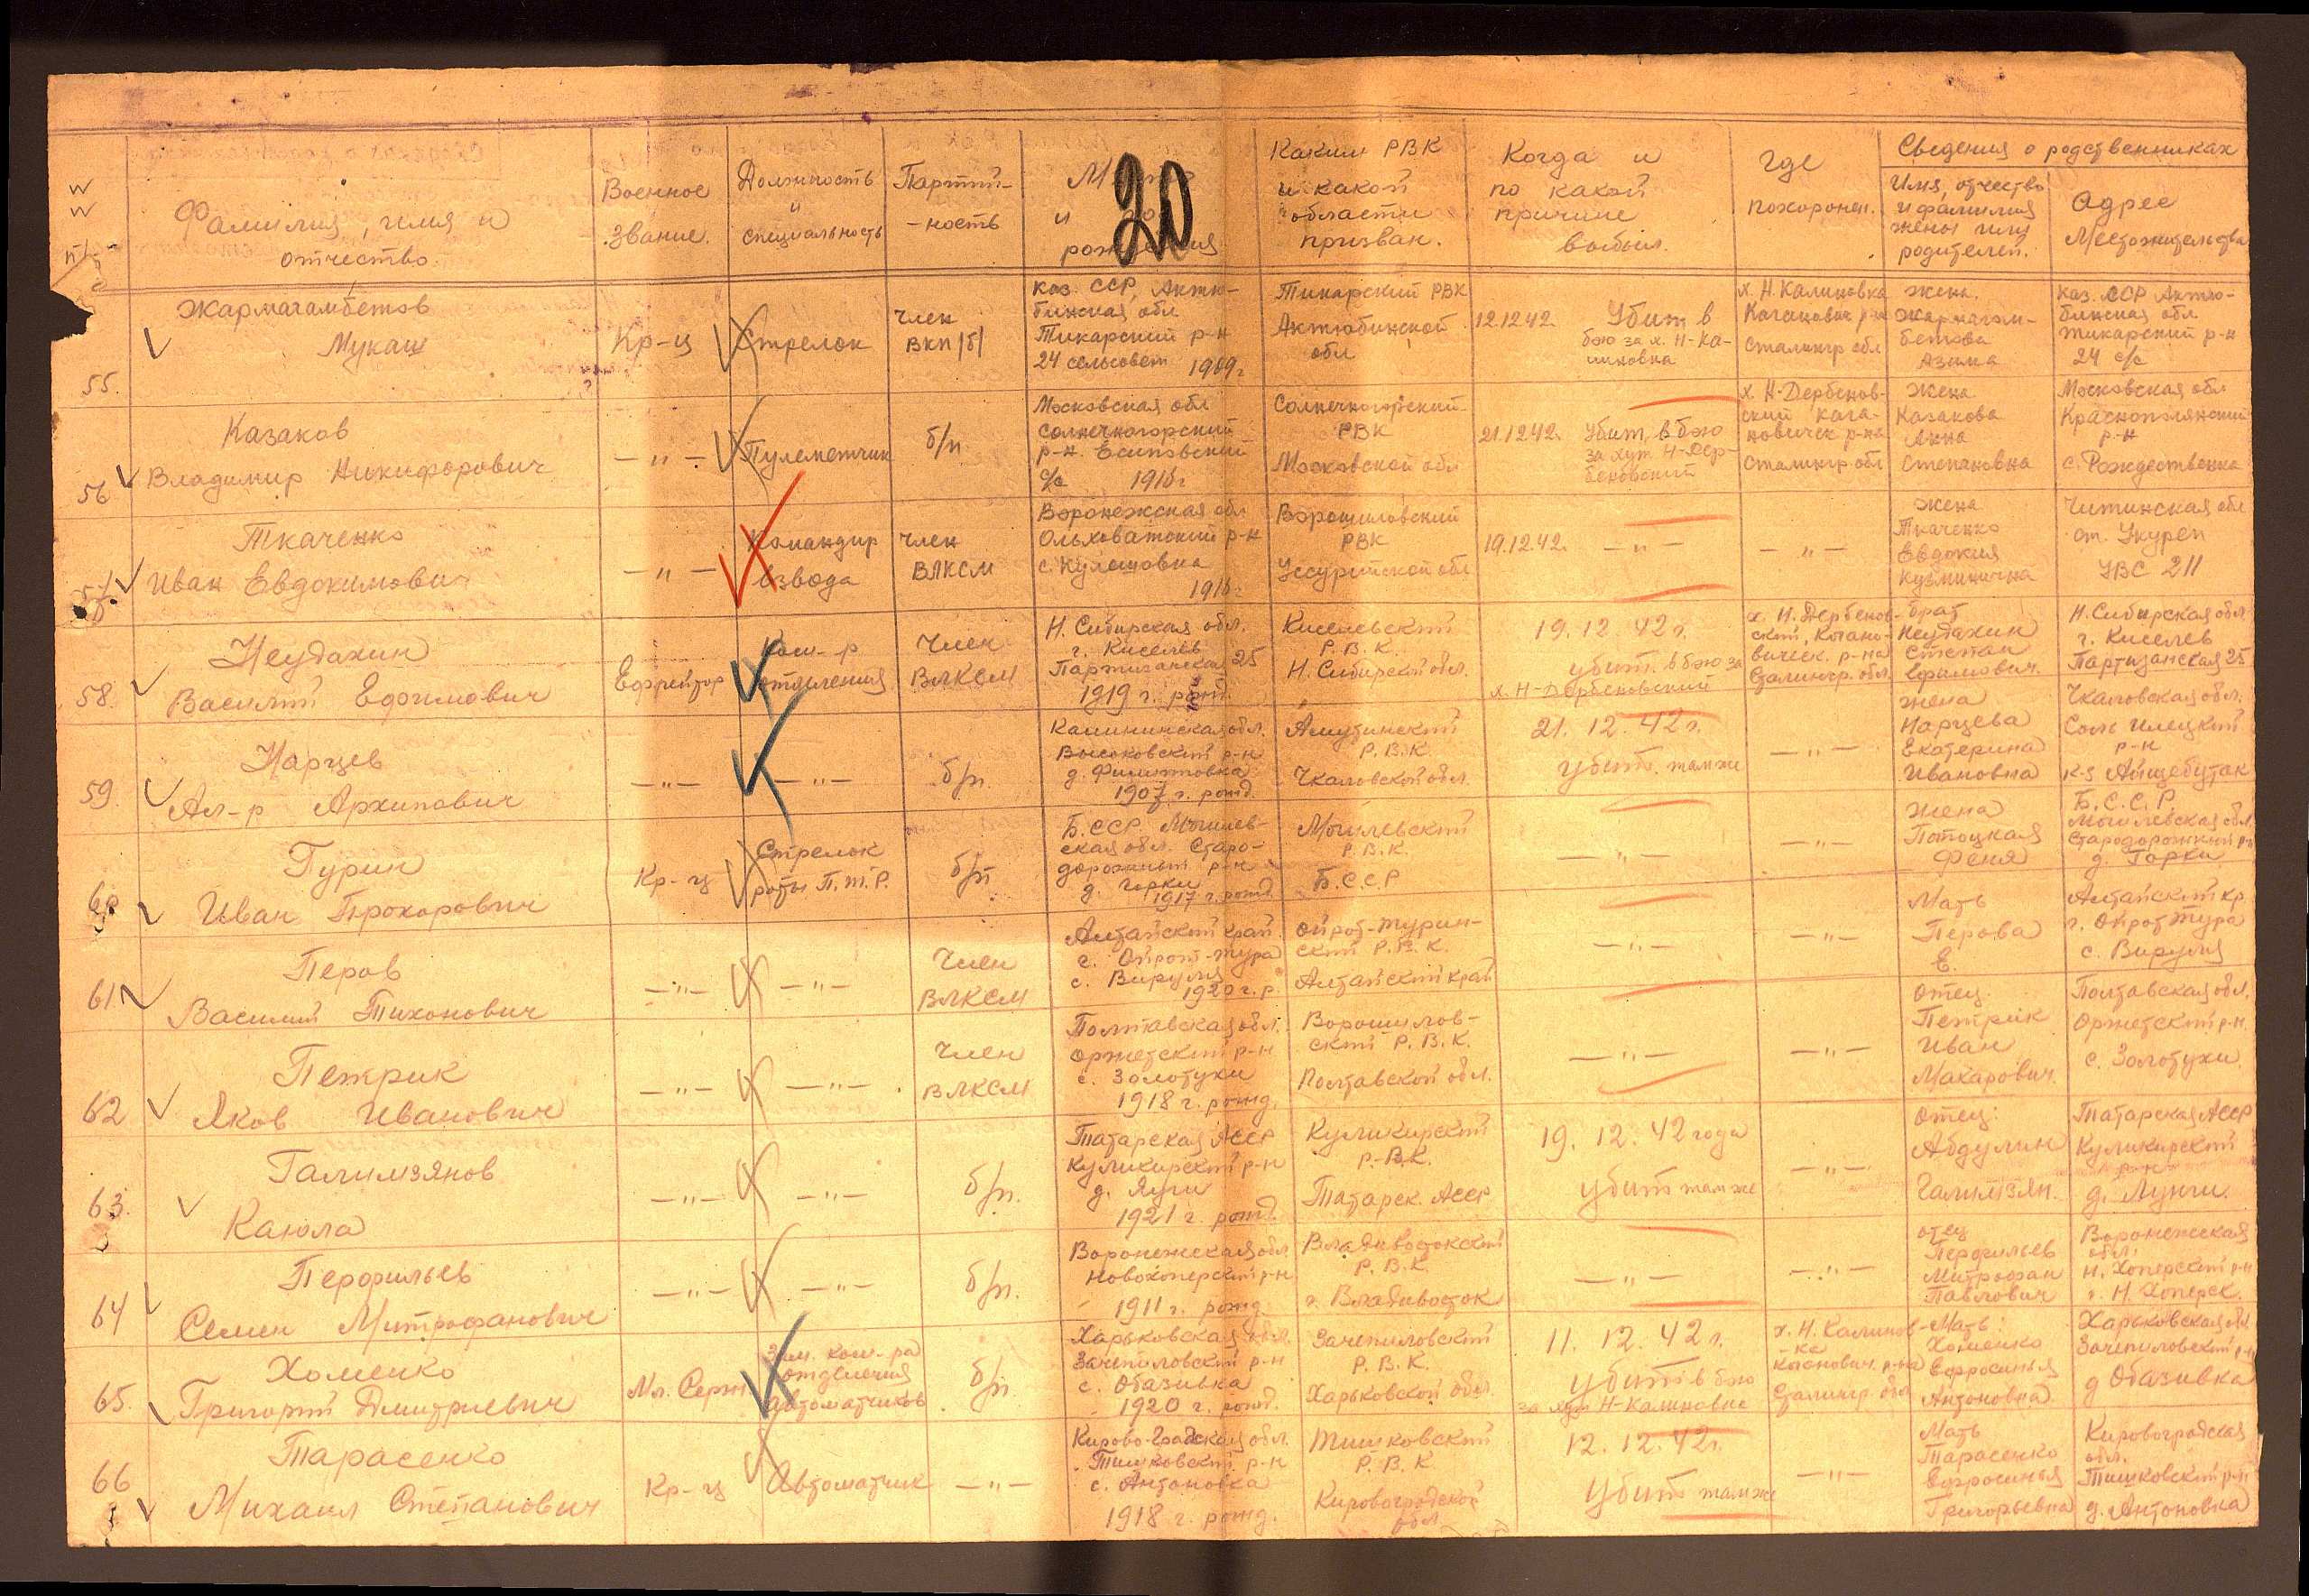 №№ п/п
Фамилия, имя и отчество
Военное звание.
Должность и специальность
Партий-ность
рождения
20
Каким РВК и какой области призван.
Когда и по какой причине выбыл.
Где похоронен.
Сведения о родственниках
Имя, отчество и фамилия жены или родителей.
Адрес местожительства
55.
Жармагамбетов
Мукаш
Кр-ц
Стрелок
член ВКП/б/
Каз. ССР, Актю-
бинская обл
Тикарский р-н
24 сельсовет 1909 г
Тикарский РВК
Актюбинской
обл
12.12.42. Убит в
бою за х. Н-Ка-
линовка
х. Н. Калиновка
Каганович р-н
Сталингр обл
жена.
Жармагам-
бетова
Азима
Каз. ССР Актю-
бинская обл
Тикарский р-н
24 с/с
56
Казаков
Владимир Никифорович
— " —
Пулеметчик
б/п
Московская обл
Солнечногорский
р-н. Есиповский
с/с 1918 г
Солнечногорский
РВК
Московской обл
21.12.42. Убит в бою
за хут Н-Дер-
беновский
х. Н-Дербенов-
ский Кага-
новичск р-на
Сталингр обл
Жена
Казакова
Анна
Степановна
Московская обл
Краснополянский
р-н
с. Рождественка
57
Ткаченко
Иван Евдокимович
— " —
Командир
взвода
член
ВЛКСМ
Воронежская обл
Ольховатский р-н
с. Кулешовка
Ворошиловский
РВК
Уссурийской обл
19.12.42. — " —
— " —
Жена
Ткаченко
Евдокия
Кузминична
Читинская обл
ст. Укурей
УВС 211
58.
Неудахин
Василий Ефимович
Ефрейтор
Ком-р
отделения
Член
ВЛКСМ
Н. Сибирская обл.
г. Киселев
Партизанская 25
1919 г. рожд.
Киселевский
Р.В.К.
Н. Сибирской обл.
19. 12 42 г.
убит. в бою за
х. Н-Дербеновский
х. Н. Дербенов-
ский, Кагано-
вическ. р-на
Сталингр. обл.
брат
Неудахин
Степан
Ефимович.
Н. Сибирская обл
г. Киселев
Партизанская 25
59.
Нарцев
Ал-р Архипович
— " —
— " —
б/п
Калининская обл.
Высоковский р-н
д. Филиповка
1907 г. рожд.
Акпутинский
Р.В.К
Чкаловской обл.
21. 12. 42 г.
убит. там же
— " —
жена
Нарцева
Екатерина
Ивановна
Чкаловская обл.
Соль Илецкий
р-н
60
Гурин
Иван Прохорович
Кр-ц
Стрелок
роты П.Т.Р.
б/п
Б.ССР Могилев-
ская обл. Старо-
дорожный р-н
д. Горки
1917 г. рожд
Могилевский
Р.В.К.
Б.С.С.Р
— " —
— " —
жена
Потоцкая
Феня
Б.С.С.Р.
Могилевская обл.
Стародорожный р-н
д. Горки
61
Перов
Василий Тихонович
— " —
— " —
Член
ВЛКСМ
Алтайский край
г. Ойрот-тура
с. Вируля
1920 г. р.
Ойрот-турин-
ский Р.В.К.
Алтайский край
— " —
— " —
Мать
Перова
Е.
Алтайский кр
г. Ойрот тура
с. Вируля
62
Петрик
Яков Иванович
— " —
— " —
Член
ВЛКСМ
Полтавская обл.
Оржетский р-н
с. Золотухи
1918 г. рожд.
Ворошилов-
ский Р.В.К.
Полтавской обл.
— " —
— " —
Отец.
Петрик
Иван
Макарович.
Полтавская обл.
Оржетский р-н.
с. Золотухи
63.
Галимзянов
Каюла
— " —
— " —
б/п.
Татарская АССР
Куликирский р-н
1921 г. рожд.
Куликирский
Р.В.К.
Татарск. АССР
19. 12. 42 года
убит там же
— " —
Отец:
Абдулин
Галимзян.
Татарская АССР
Куликирский
р-н
64
Перфильев
Семен Митрофанович
— " —
— " —
б/п.
Воронежская обл.
Новохоперский р-н
1911 г. рожд
Владивостокский
Р.В.К.
г. Владивосток
— " —
— " —
отец
Перфильев
Митрофан
Павлович
Воронежская
обл.
Н. Хоперский р-н
г. Н. Хоперск.
65.
Хоменко
Григорий Дмитриевич
Мл. Серж
Зам. ком-ра
отделения
автоматчиков
б/п.
Харьковская обл.
Зачепиловский р-н
с. Обазивка
1920 г. рожд.
Зачепиловский
Р.В.К.
Харьковской обл.
11. 12. 42 г.
убит в бою
за хут Н-Калиновка
х. Н. Калинов-
ка
Каганович. р-на
Сталингр. обл
Мать:
Хоменко
Ефросинья
Антоновна
Харьковская обл.
Зачепиловский р-н
д Обазивка
66
Тарасенко
Михаил Степанович
Кр-ц
Автоматчик
— " —
Кирово-Градская обл.
Тишковский р-н
с. Антоновка
1918 г. рожд.
Тишковский
Р.В.К
Кировоградской
обл
12. 12. 42 г.
Убит там же
— " —
Мать
Тарасенко
Ефросинья
Григорьевна
Кировоградская
обл.
Тишковский р-н
д. Антоновка